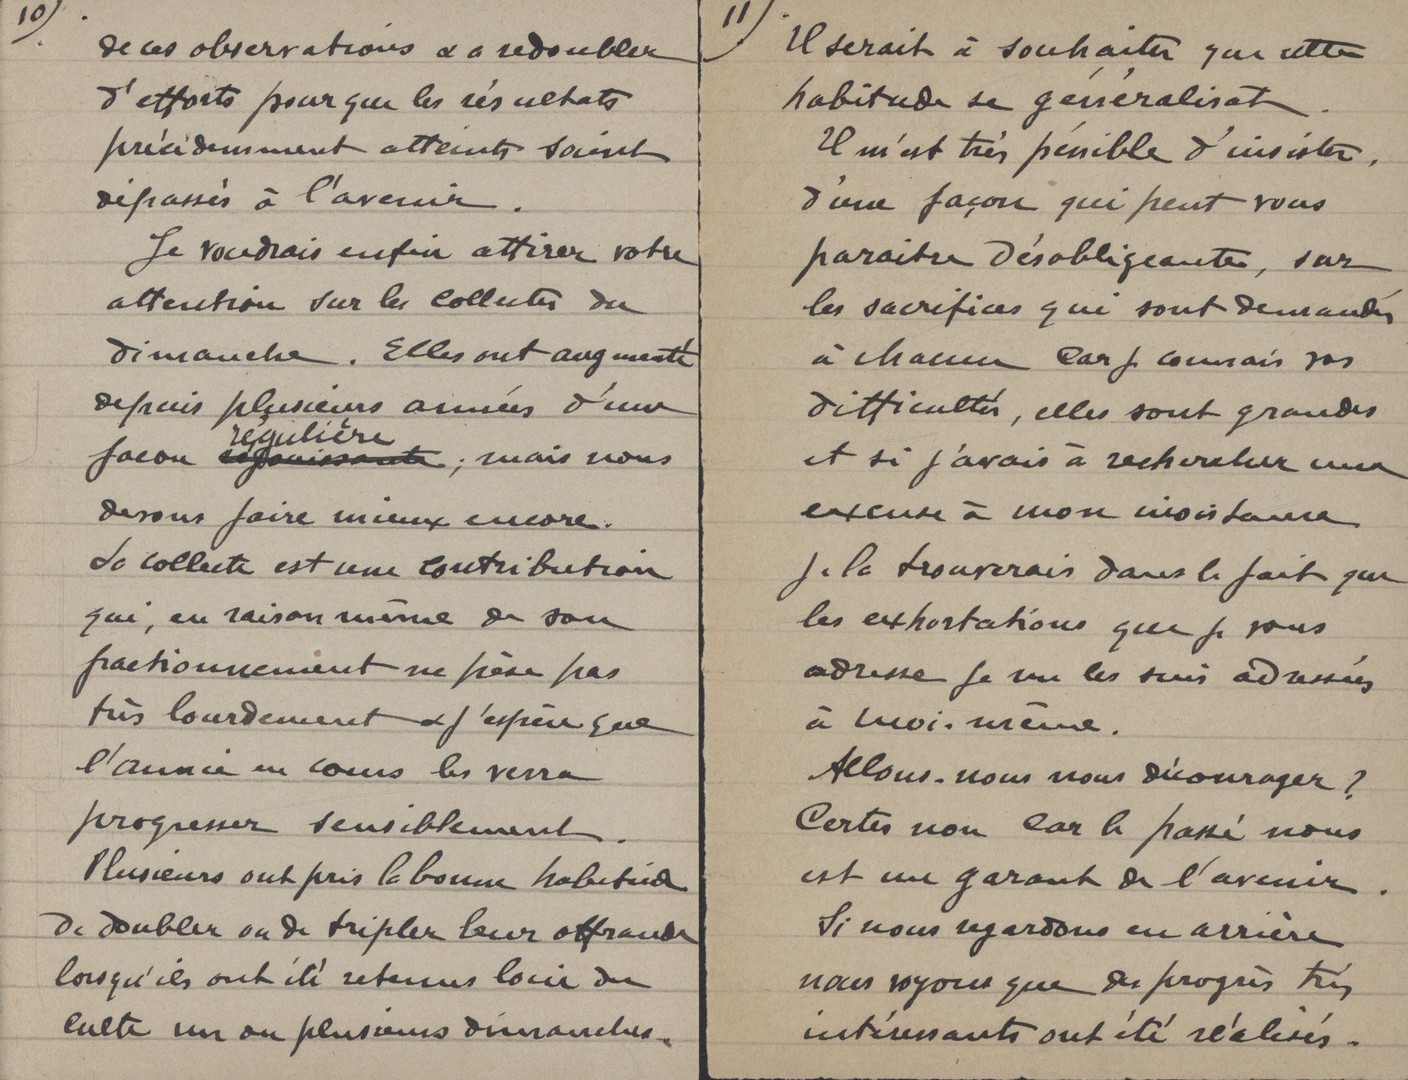 10)
de ces observations & a redoubler
d'efforts pour que les résultats
précédemment atteints soient
dépassés à l'avenir.
Je voudrais enfin attirer votre
attention sur les collectes du
dimanche. Elles ont augmenté
depuis plusieurs années d'une
régulière
façon ; mais nous
devons faire mieux encore.
La collecte est une contribution
qui, en raison même de son
fractionnement ne pèse pas
très lourdement & j'espère que
l'année en cours les verra
progresser sensiblement.
Plusieurs ont pris la bonne habitude
de doubler ou de tripler leur offrande
lorsqu'ils ont été retenus loin du
culte un ou plusieurs dimanches.
11)
Il serait à souhaiter que cette
habitude se généralisat.
Il m'est très pénible d'insister,
d'une façon qui peut vous
paraitre désobligeante, sur
les sacrifices qui sont demandés
à chacun car je connais vos
difficultés, elles sont grandes
et si j'avais à rechercher une
excuse à mon insistance
je la trouverais dans le fait que
les exhortations que je vous
adresse je me les suis adressées
à moi-même.
Allons-nous nous décourager ?
Certes non car le passé nous
est un garant de l'avenir.
Si nous regardons en arrière
nous voyons que des progrès très
intéressants ont été réalisés.